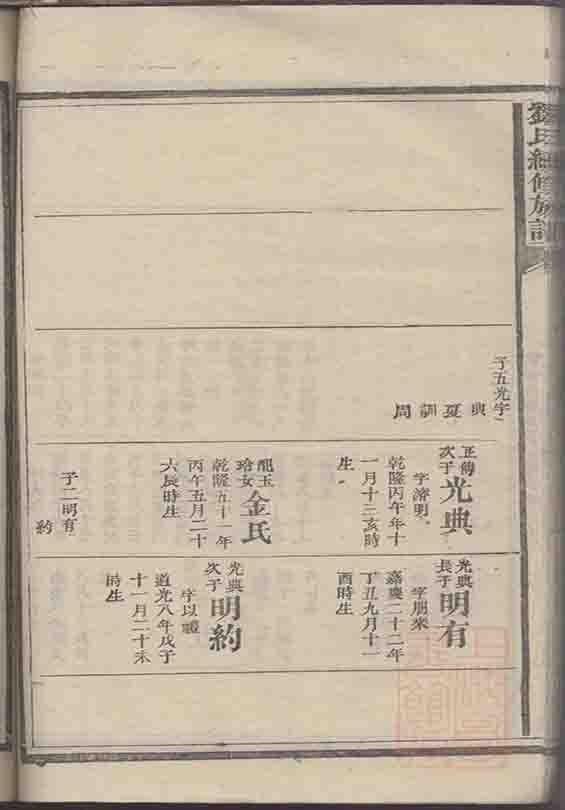 氏續修族譜
子五光宇
典
夏
訓
周
正傅
次子
光典
字濟明
乾隆丙午年十
一月十三亥時
生
配玉
珨女
金氏
乾隆五十一年
丙午五月二十
六辰時生
子二明有
約
光典
長子
明有
字朋來
嘉慶二十二年
丁丑九月十一
酉時生
光典
次子
明約
字以禮
道光八年戊子
十一月二十未
時生